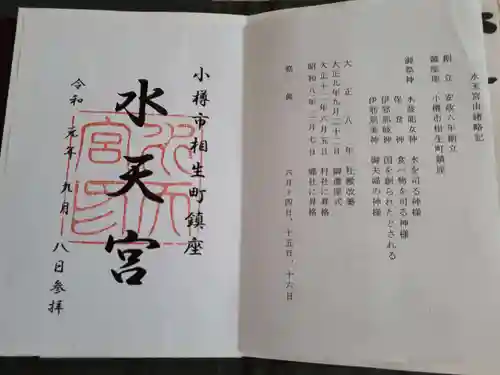 小樽市相生町鎮座
水天宮
水天宮印
令和元年九月八日参拝
水天宮由緒略記
創立 安政六年創立
鎮座地 小樽市相生町鎮座
御祭神 水波能女神 水を司る神様
保食神 食べ物を司る神様
伊邪那岐神 国を創られたとされる
伊邪那美神 御夫婦の神様
大正八年 社殿改築
大正九年九月二十二日 御遷座式
大正十一年六月五日 村社に昇格
昭和八年三月七日 郷社に昇格
例祭 六月十四日、十五日、十六日